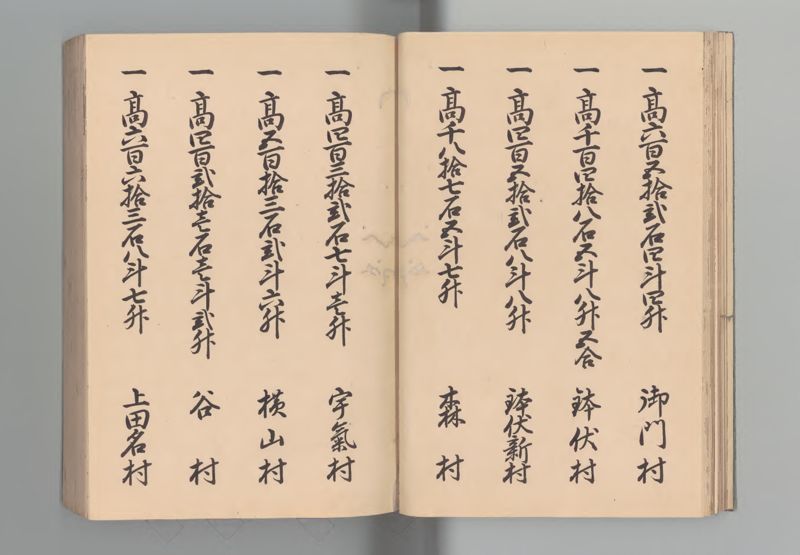 一 髙六百五拾弐石四斗四升 御門村
一 髙千百四拾八石五斗八升五合 鉢伏村
一 髙四百五拾弐石八斗八升 鉢伏新村
一 髙千八拾七石五斗七升 森村
一 髙四百三拾弐石七斗壱升 宇氣村
一 髙五百拾三石弐斗六升 横山村
一 髙四百弐拾壱石壱斗弐升 谷村
一 髙六百六拾三石八斗七升 上田名村